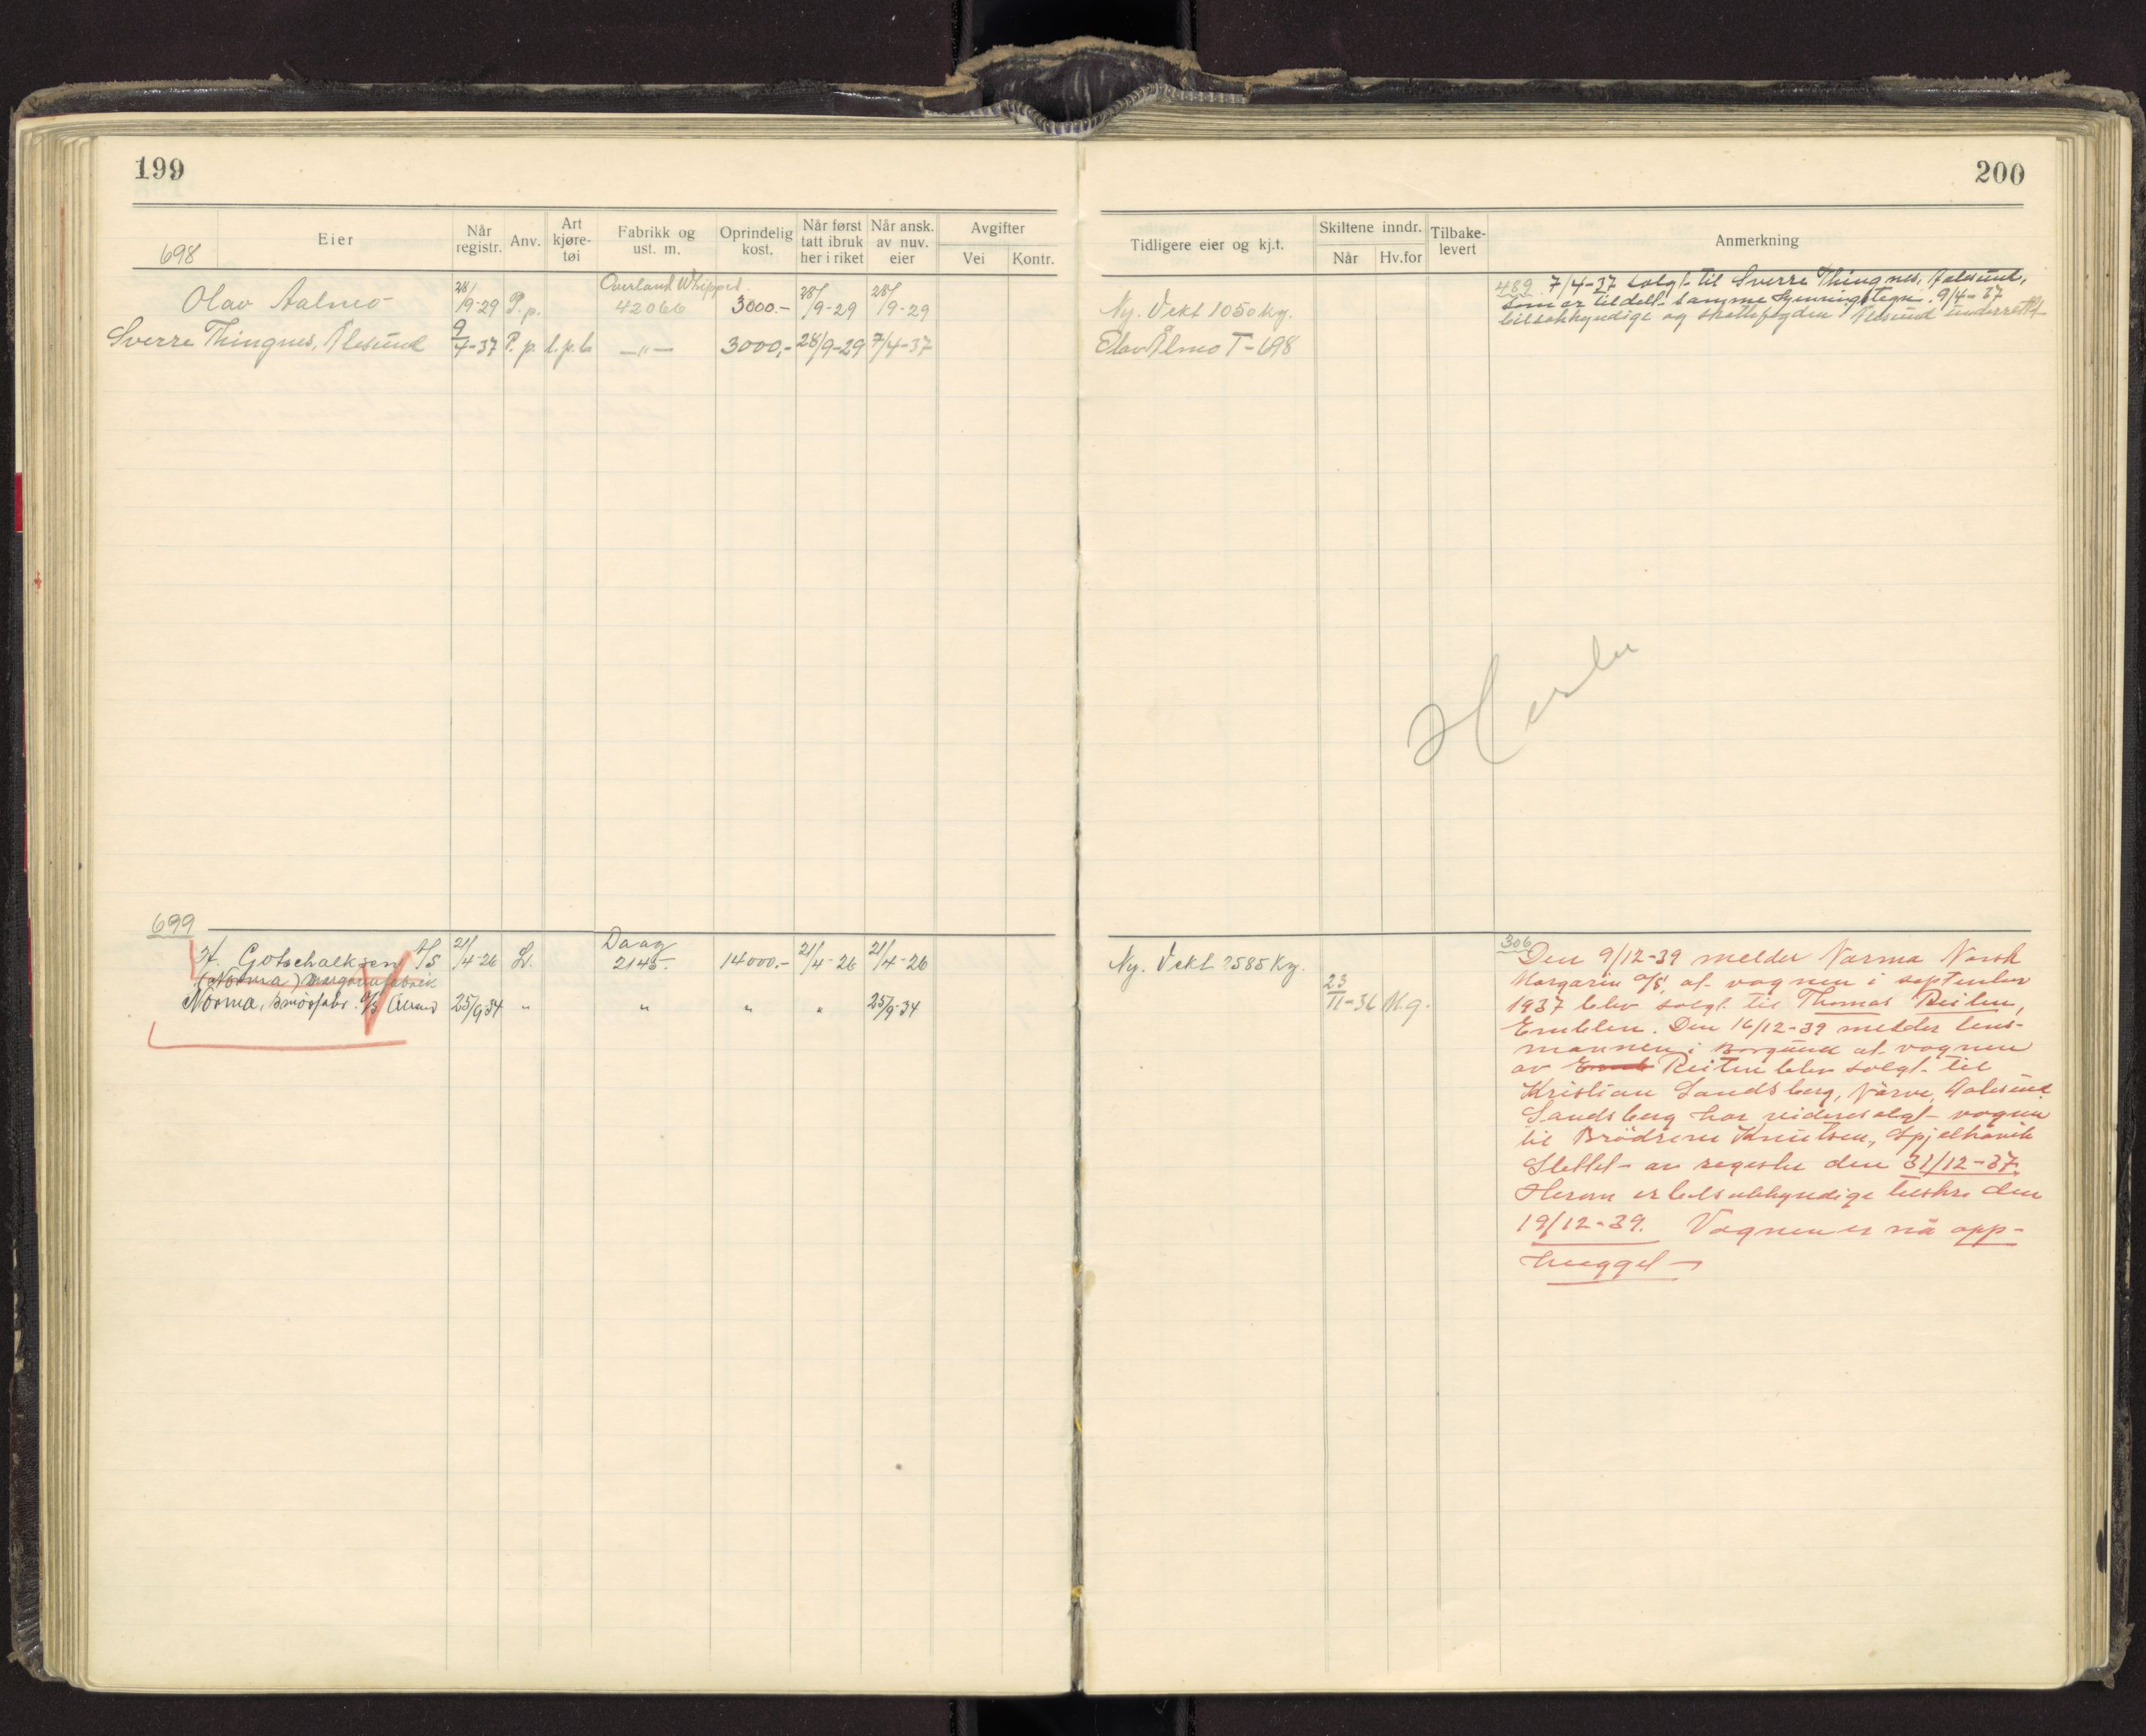 199
200
698
Eier
Når registr.
Anv.
Art kjøre-tøi
Fabrikk og ust. m.
Oprindelig kost.
Når først tatt ibruk her i riket
Når ansk. av nuv. eier
Avgifter
Vei
Kontr.
Tidligere eier og kj.t.
Skiltene inndr.
Når
Hv.for
Tilbake-levert
Anmerkning
Olav Aalmo 28/9-29 P.p. Overland Whippet 42066 3000.- 28/9-29 28/9-29
Ny. Vekt 1050 kg.
489 7/4-37 solgt til Sverre Thingnes, Aalesund,
som er tildelt samme kjenningstegn. 9/4-37
bilsakkyndige og skattefogden Ålesund underrettet
Sverre Thingnes, Ålesund 9/4-37 P.p. l.p.b —"— 3000,- 28/9-29 7/4-37
Olav Ålmo T-698
699
H. Gotschalksen A/S 21/4-26 L. Daag 2145 14000.- 21/4-26 21/4-26
(Norma) Margarinfabrik
Norma, Smørfabr. A/S Ålesund 25/9-34 " " " " 25/9-34
Ny. Vekt 2585 kg.
23/11-36 M.g.
306
Den 9/12-39 melder Norma Norsk
Margarin A/S, at vognen i september
1937 blev solgt til Thomas Reiten,
Emblem. Den 16/12-39 melder lens-
mannen i Borgund at vognen
av Reiten blev solgt til
Kristian Sandsberg, Nørve, Aalesund.
Sandsberg har videresolgt vognen
til Brødrene Knutsen, Spjelkavik
Slettet av register den 31/12-37.
Herom er bilsakkyndige tilskr. den
19/12-39. Vognen er nå opp-
hugget